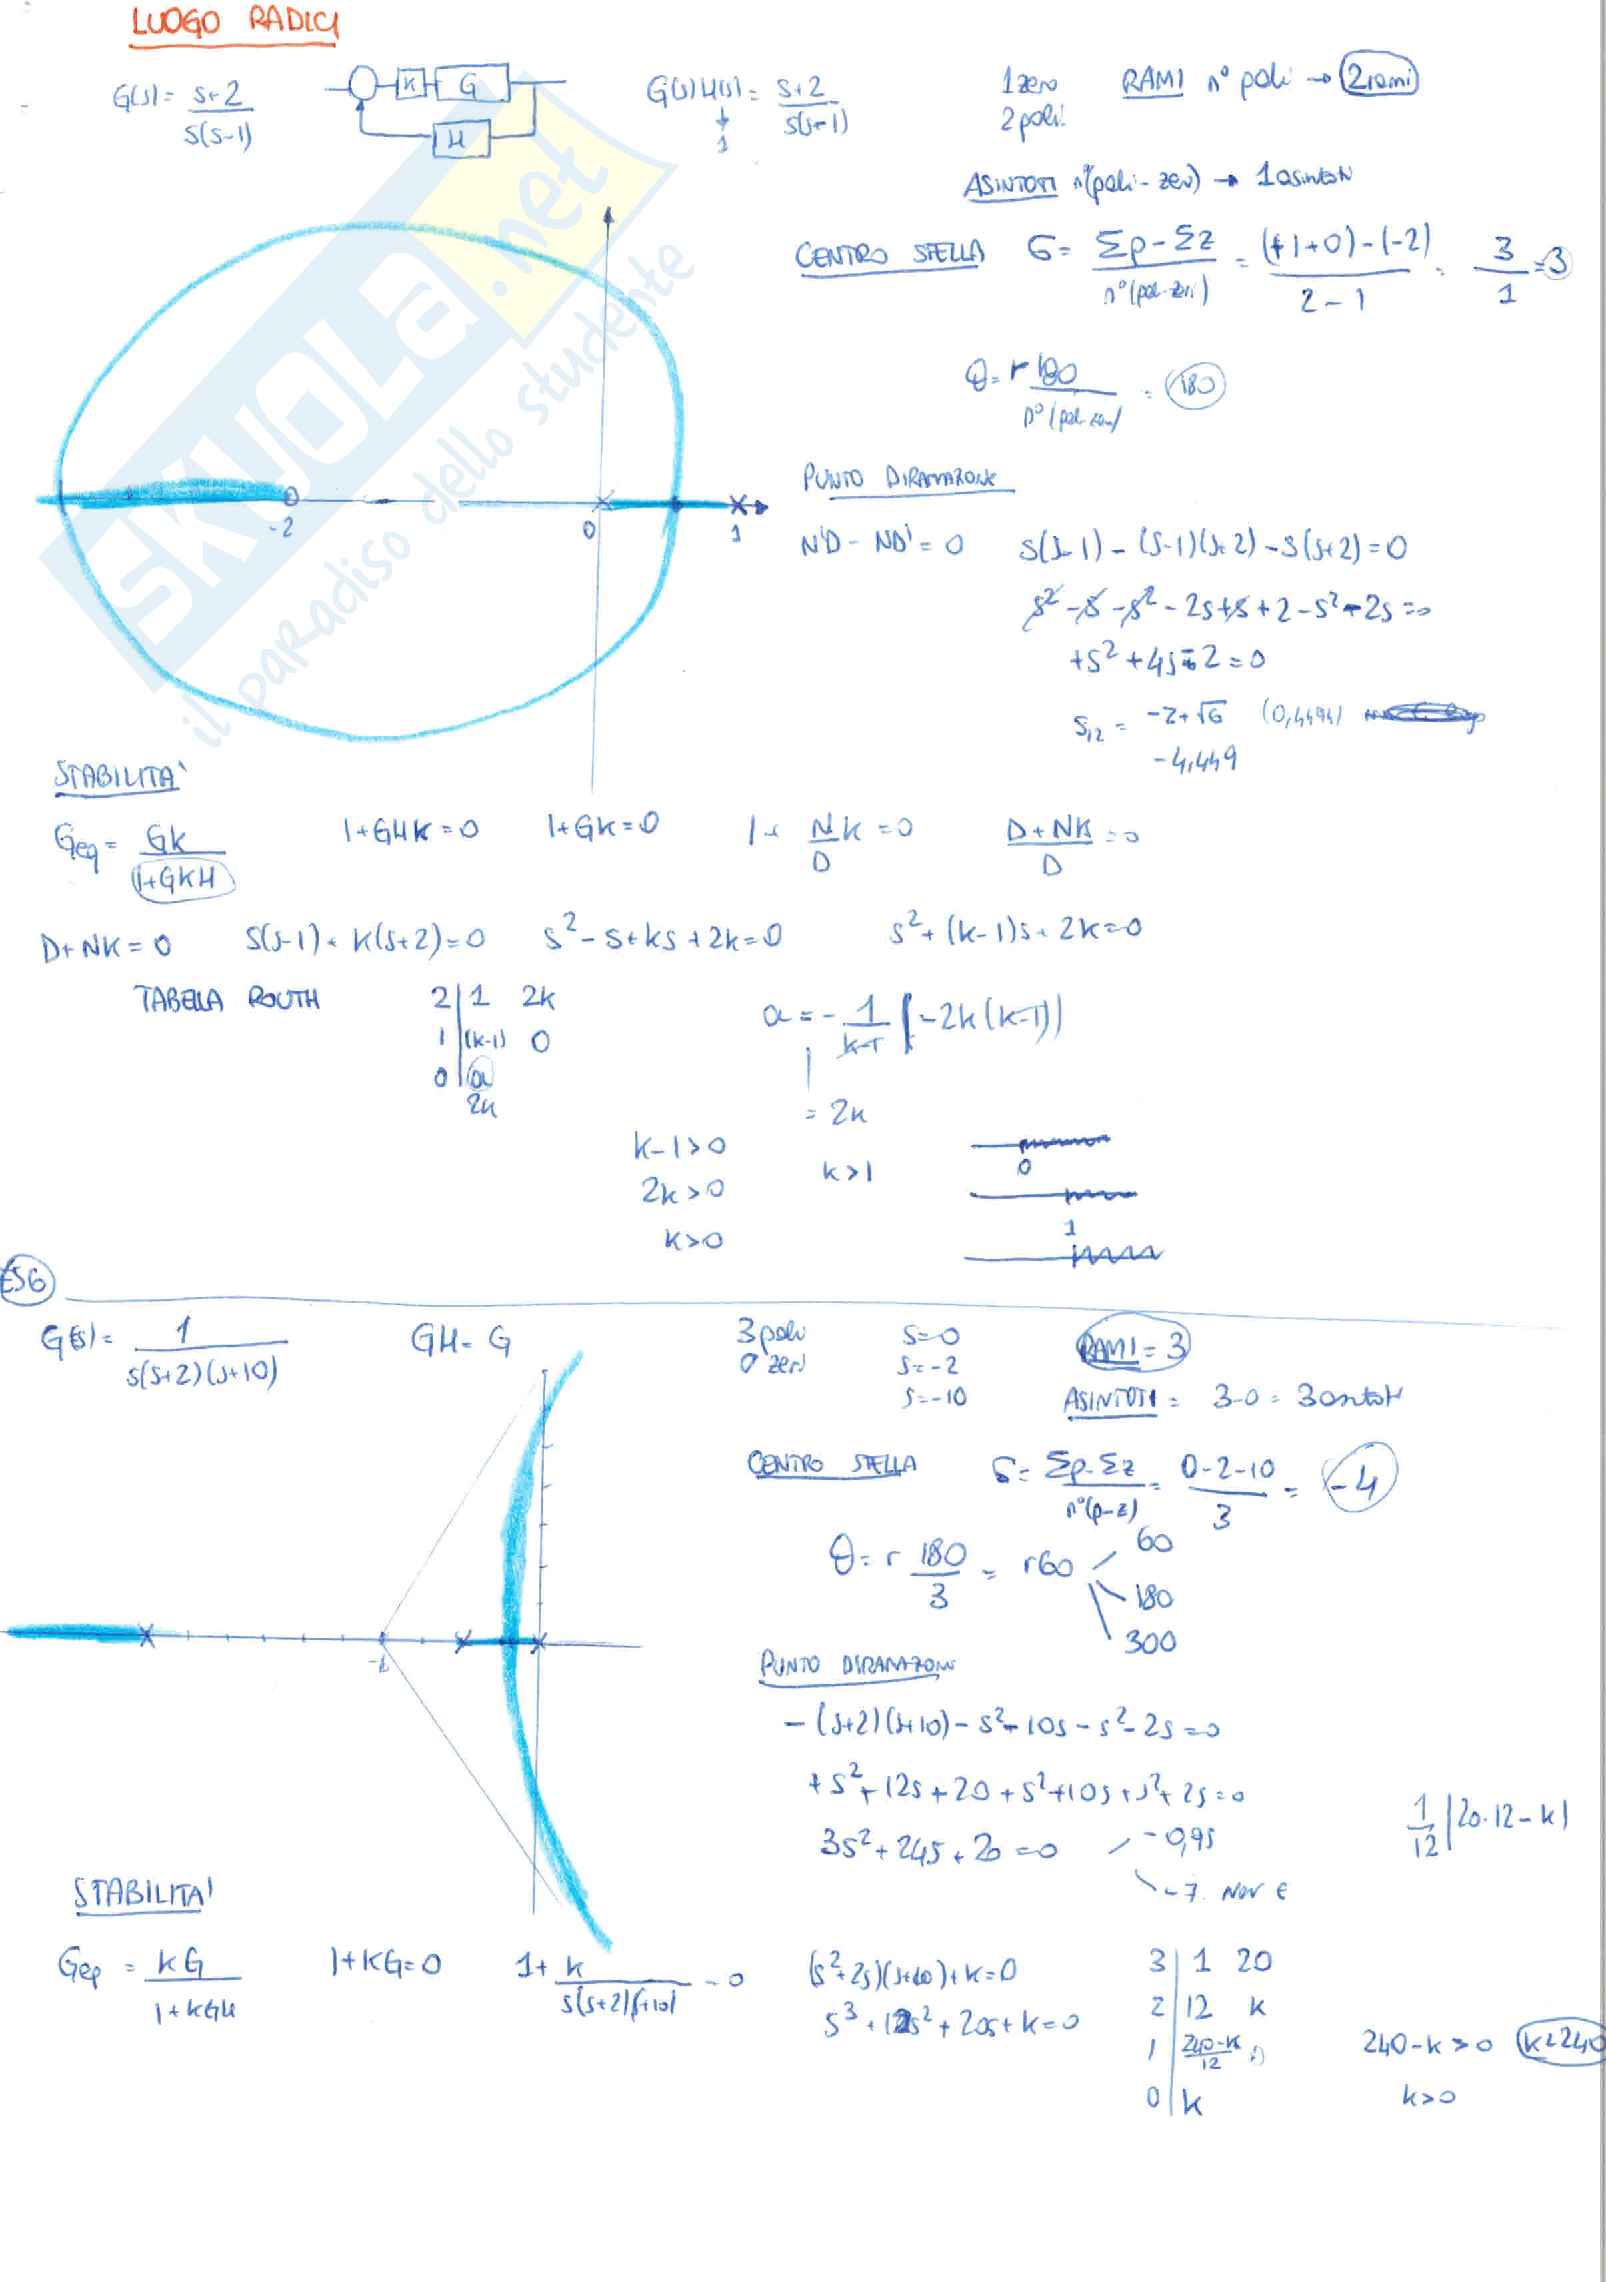 LUOGO RADICI
G(s) = s+2 / s(s-1)
K G
H
G(s)H(s) = s+2 / s(s-1)
1
1 zero
2 poli
RAMI n° poli → 2 rami
ASINTOTI n°(poli - zeri) → 1 asintoti
CENTRO STELLA σ = Σp - Σz / n°(poli-zeri) = (+1+0) - (-2) / 2 - 1 = 3 / 1 = 3
θ = r 180 / n°(poli-zeri) = 180
-2 0 1
PUNTO DIRAMAZIONE
N'D - ND' = 0 s(s-1) - (s-1)(s+2) - s(s+2) = 0
s² - s - s² - 2s + s + 2 - s² - 2s = 0
+s² + 4s - 2 = 0
s12 = -2+√6 (0,4494)
-4,449
STABILITA'
Geq = GK / 1+GKH 1+GHK = 0 1+GK = 0 1+ N/D K = 0 D+NK / D = 0
D+NK = 0 s(s-1) + K(s+2) = 0 s² - s + ks + 2k = 0 s² + (k-1)s + 2k = 0
TABELLA ROUTH
2 | 1 2k
1 | (k-1) 0
0 | a
2k
a = - 1 / k-1 [-2k(k-1)]
= 2k
k-1 > 0
2k > 0
k > 0
k > 1
0
1
ES6
G(s) = 1 / s(s+2)(s+10)
GH = G
3 poli
0 zeri
s=0
s=-2
s=-10
RAMI = 3
ASINTOTI = 3-0 = 3 asintoti
CENTRO STELLA σ = Σp-Σz / n°(p-z) = 0-2-10 / 3 = -4
θ = r 180 / 3 = r60
60
180
300
PUNTO DIRAMAZIONE
-(s+2)(s+10) - s² - 10s - s² - 2s = 0
+s² + 12s + 20 + s² + 10s + s² + 2s = 0
3s² + 24s + 20 = 0
-0,95
-7 NON E
1/12 |20·12 - k|
STABILITA'
Geq = KG / 1+KGH 1+KG = 0 1+ k / s(s+2)(s+10) = 0
(s²+2s)(s+10)+k = 0
s³ + 12s² + 20s + k = 0
3 | 1 20
2 | 12 k
1 | 240-k / 12
0 | k
240-k > 0 k<240
k > 0
SKUOLA.net
il paradiso dello studente